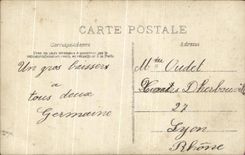 CARTE POSTALE
Correspondance
Adresse
Un gros baisers
à
tous deux
Germaine
Mme Oudet
27
Lyon
Rhône